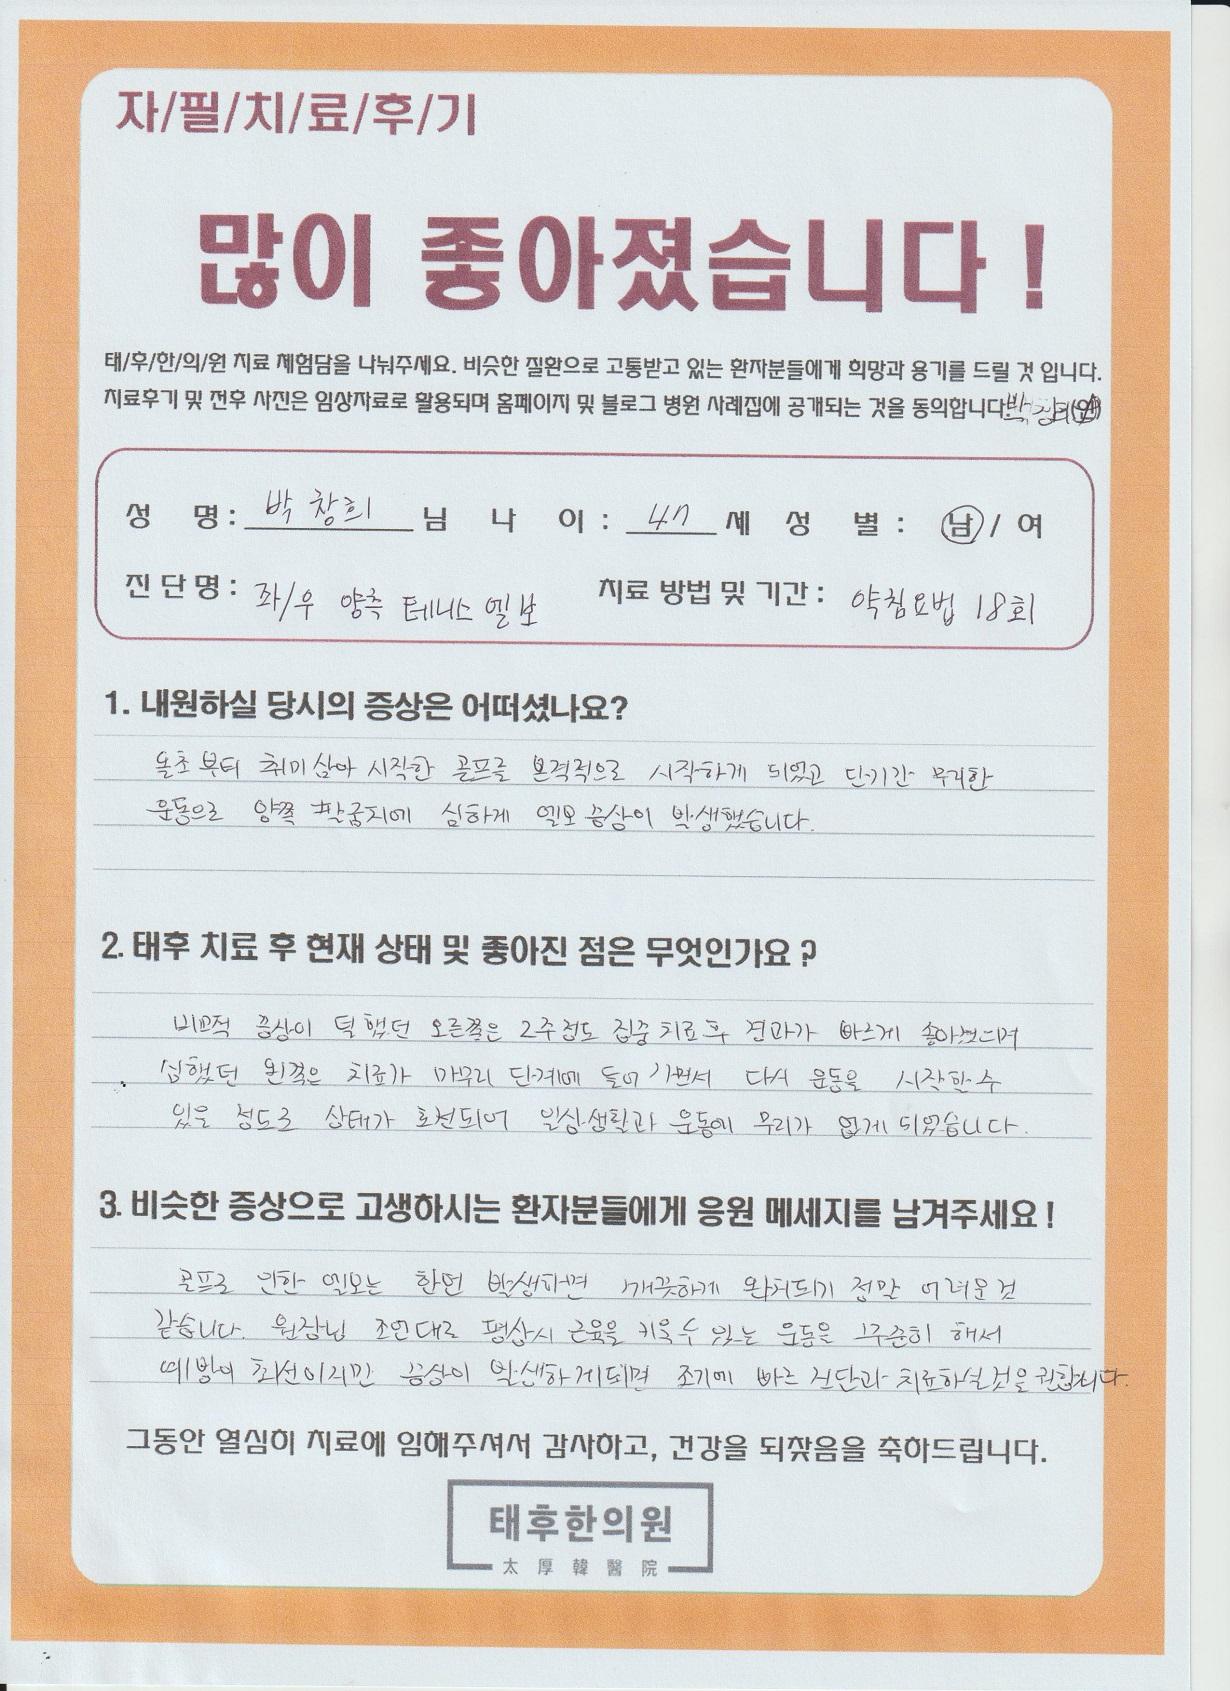 자/필/치/료/후/기
많이 좋아졌습니다 !
태/후/한/의/원 치료 체험담을 나눠주세요. 비슷한 질환으로 고통받고 있는 환자분들에게 희망과 용기를 드릴 것 입니다.
치료후기 및 전후 사진은 임상자료로 활용되며 홈페이지 및 블로그 병원 사례집에 공개되는 것을 동의합니다. 박창희(인)
성 명 : 박 창희 님 나 이 : 47 세 성 별 : 남 / 여
진 단 명 : 좌/우 양측 테니스 엘보 치료 방법 및 기간 : 약침요법 18회
1. 내원하실 당시의 증상은 어떠셨나요?
올초부터 취미삼아 시작한 골프를 본격적으로 시작하게 되었고 단기간 무리한
운동으로 양쪽 팍굼지에 심하게 엘보 증상이 발생했습니다.
2. 태후 치료 후 현재 상태 및 좋아진 점은 무엇인가요 ?
비교적 증상이 덜했던 오른쪽은 2주정도 집중치료 후 결과가 빠르게 좋아졌으며
심했던 왼쪽은 치료가 마무리 단계에 들어가면서 다시 운동을 시작할 수
있을 정도로 상태가 호전되어 일상생활과 운동에 무리가 없게 되었습니다.
3. 비슷한 증상으로 고생하시는 환자분들에게 응원 메세지를 남겨주세요 !
골프로 인한 엘보는 한번 발생하면 깨끗하게 완치되기 정말 어려운것
같습니다. 원장님 조언대로 평상시 근육을 키울 수 있는 운동을 꾸준히 해서
예방이 최선이지만 증상이 발생하게되면 조기에 빠른 진단과 치료하실것을 권합니다.
그동안 열심히 치료에 임해주셔서 감사하고, 건강을 되찾음을 축하드립니다.
태후한의원
太 厚 韓 醫 院